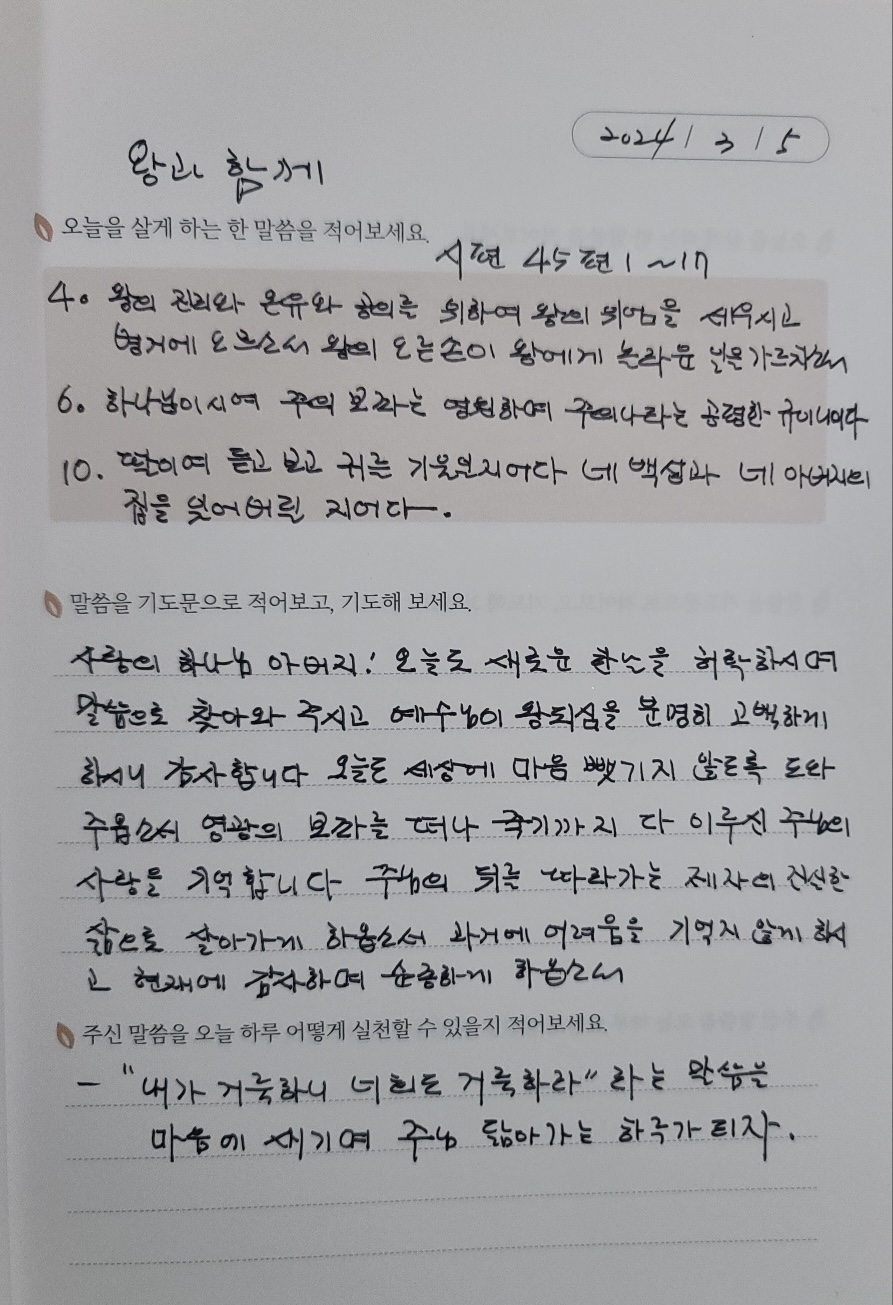 2024 / 3 / 5
왕과 함께
오늘을 살게 하는 한 말씀을 적어보세요.
시편 45편 1 ~ 17
4. 왕의 진리와 온유와 공의를 위하여 왕의 위엄을 세우시고
병거에 오르소서 왕의 오른손이 왕에게 놀라운 일을 가르치소서
6. 하나님이시여 주의 보좌는 영원하며 주의 나라는 공평한 규이니이다
10. 딸이여 듣고 보고 귀를 기울일지어다 네 백성과 네 아버지의
집을 잊어버릴 지어다.
말씀을 기도문으로 적어보고, 기도해 보세요.
사랑의 하나님 아버지! 오늘도 새로운 한날을 허락하시며
말씀으로 찾아와 주시고 예수님이 왕되심을 분명히 고백하게
하시니 감사합니다 오늘도 세상에 마음 뺏기지 않도록 도와
주옵소서 영광의 보좌를 떠나 죽기까지 다 이루신 주님의
사랑을 기억합니다 주님의 뒤를 따라가는 제자의 진실한
삶으로 살아가게 하옵소서 과거에 어려움을 기억지 않게 하시
고 현재에 감사하며 순종하게 하옵소서
주신 말씀을 오늘 하루 어떻게 실천할 수 있을지 적어보세요.
- "내가 거룩하니 너희도 거룩하라" 라는 말씀을
마음에 새기며 주님 닮아가는 하루가 되자.